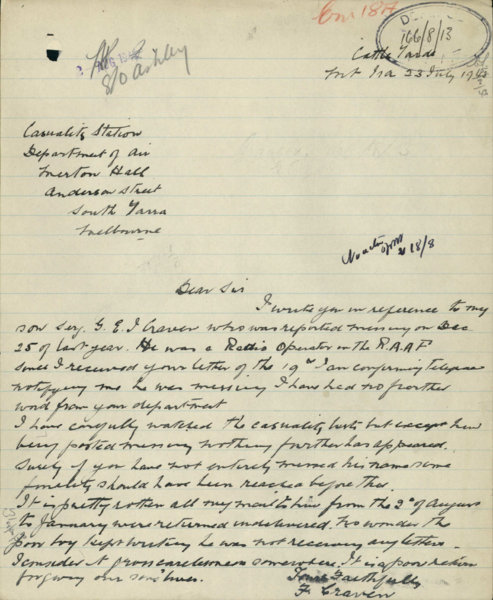 166/8/13
Cattle Yards
Mt Isa 23 July 1943
S/O Ashley
Casuality Station
Department of Air
Merton Hall
Anderson Street
South Yarra
Melbourne
18/8
Dear Sir
I write you in reference to my
son Serg. G. E. J Craven who was reported missing on Dec
25 of last year. He was a Radio Operator in the R.A.A.F
since I received your letter of the 19th Jan confirming telegram
notifying me he was missing I have had no further
word from your department
I have carefully watched the casuality lists but except him
being posted missing nothing further has appeared.
Surely if you have not entirely missed his name some
finality should have been reached before this.
It is pretty rotten all my mail to him from the 2d of August
to January were returned undelivered. No wonder the
poor boy kept writing he was not receiving any letters.
I consider it gross carelessness somewhere. It is a poor return
for giving our sons lives.
Yours Faithfully
F. Craven